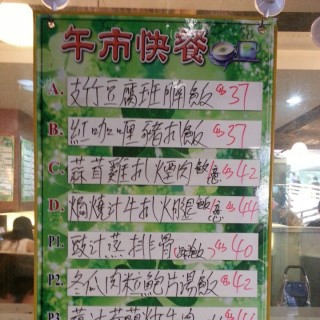 午市快餐
A. 支竹豆腐班腩飯 $37
B. 紅咖喱豬扒飯 $37
C. 蒜茸雞扒煙肉飯 $42
D. 燒汁牛扒火腿 $44
P1. 豉汁蒸排骨 $40
P2. 冬瓜肉粒鮑片湯飯 $42
P3.